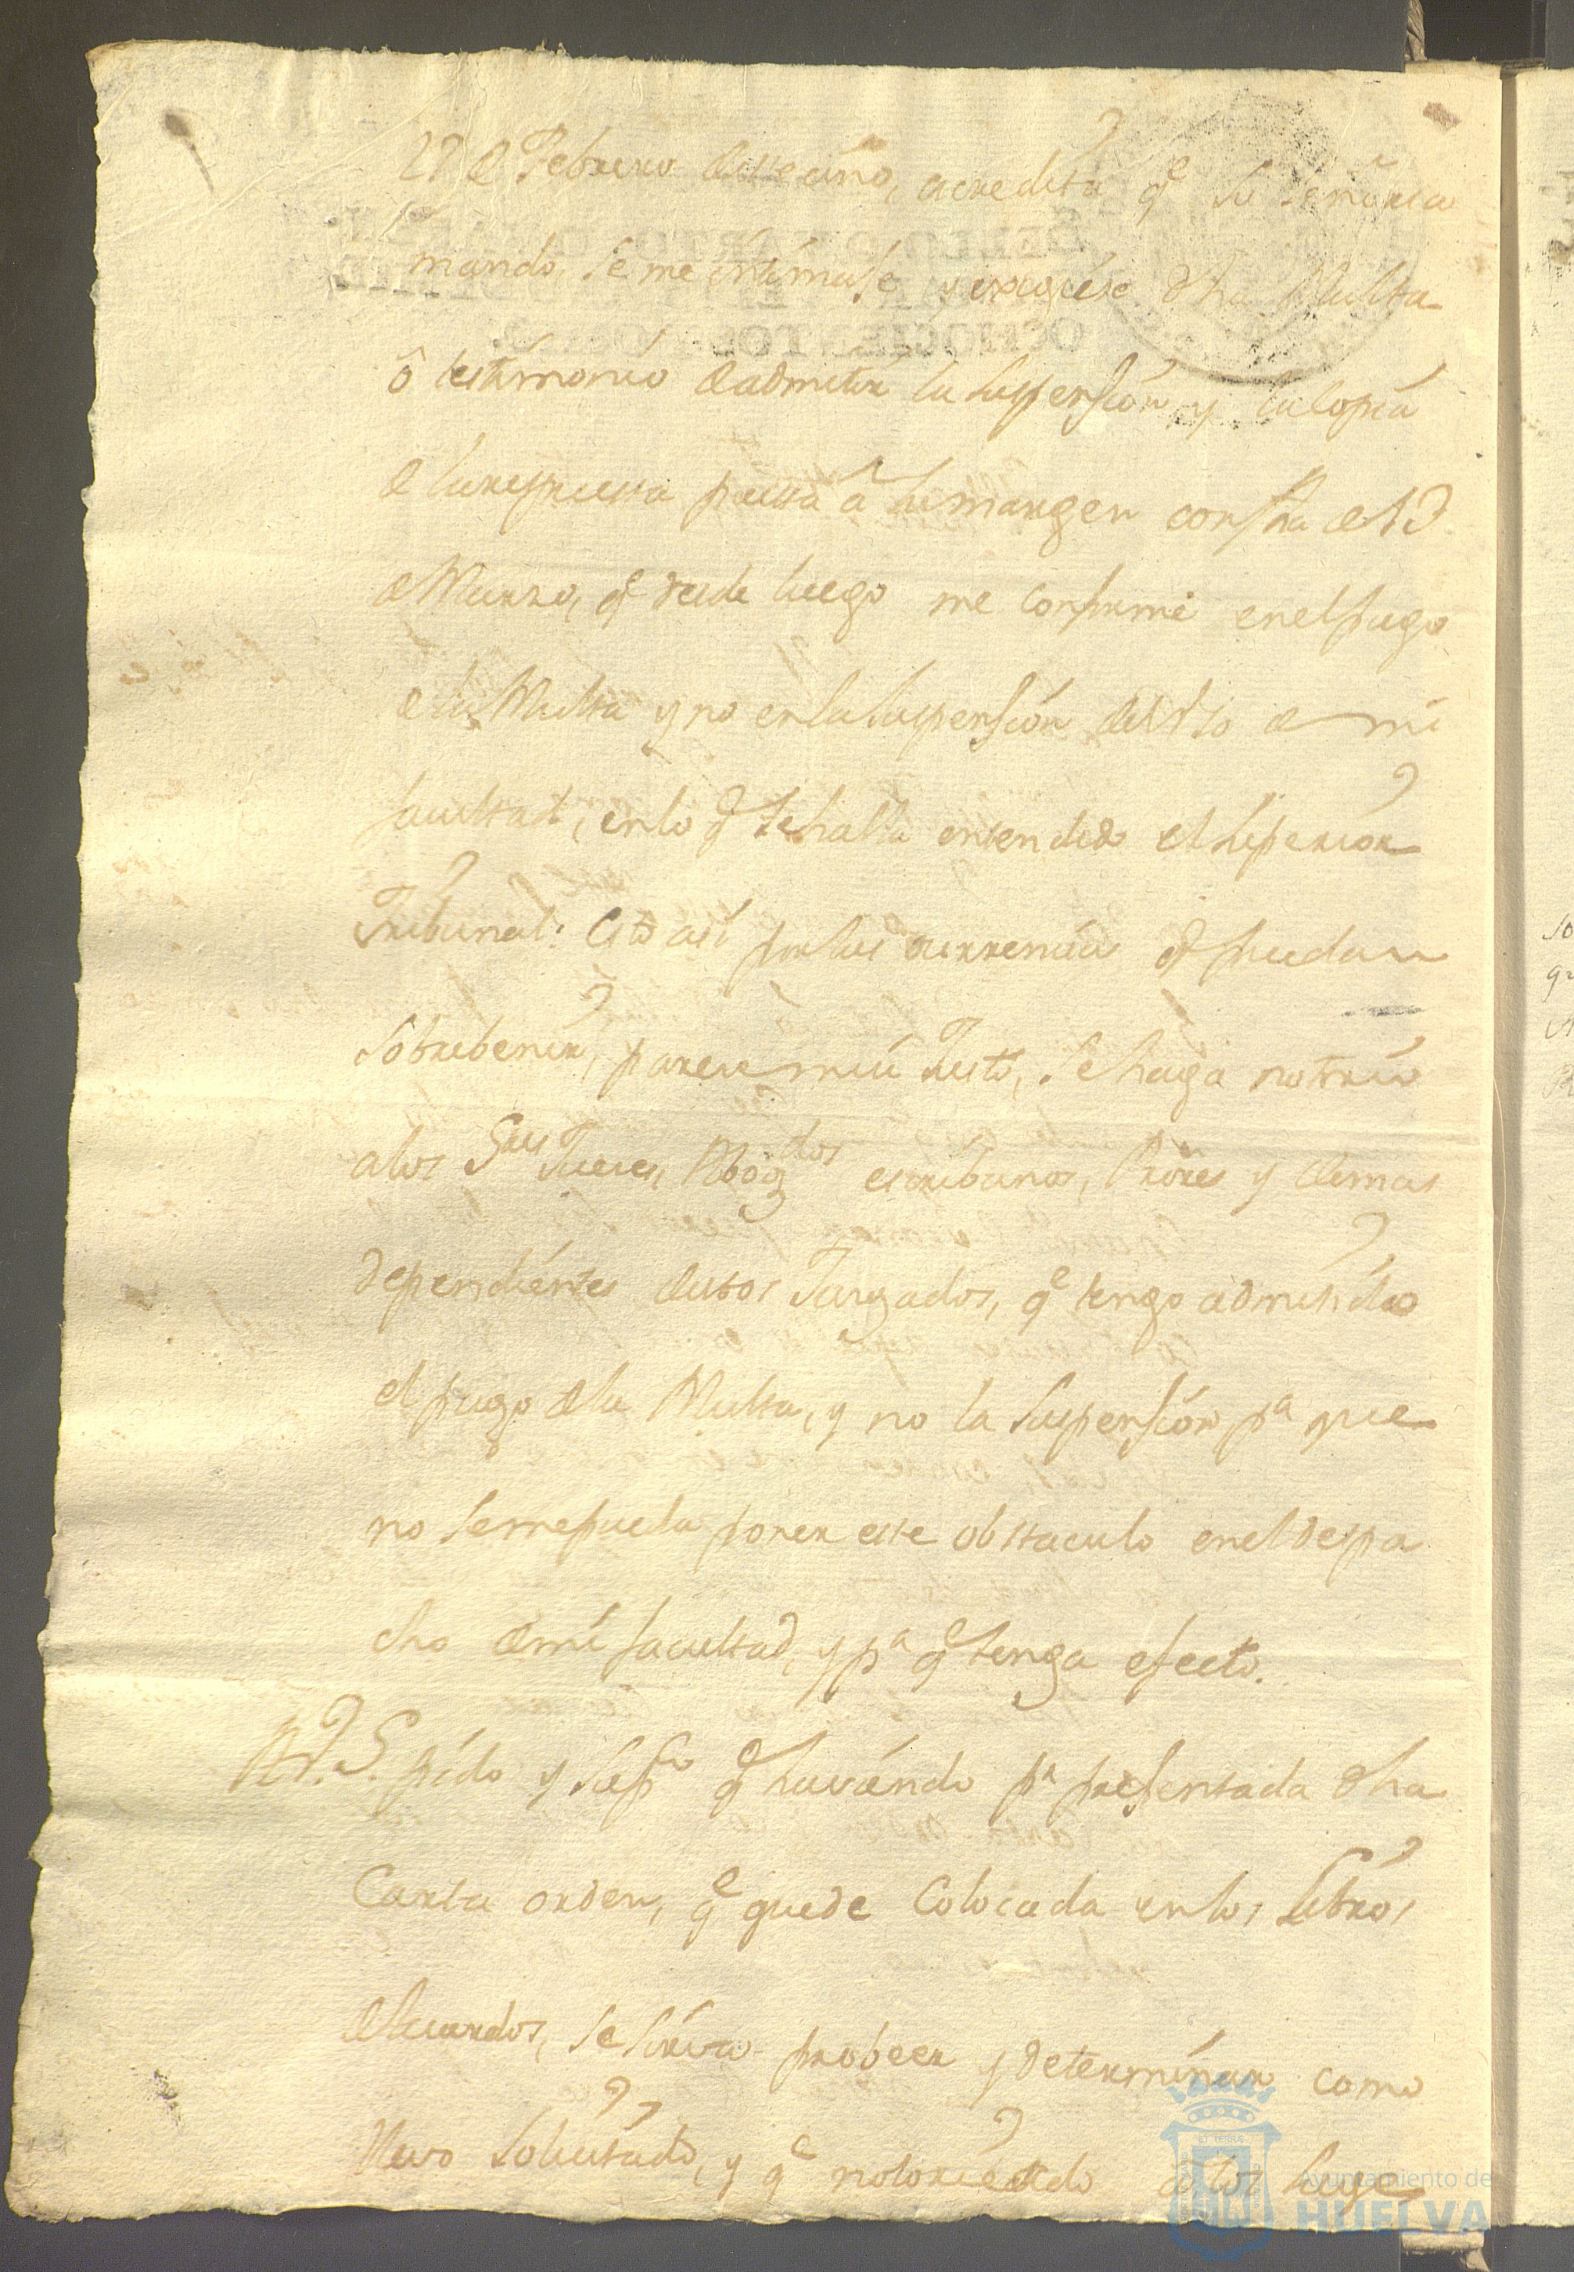 27 de Febrero de este año, acredita qe Su Señoria
mando, se me intimase y exsigiese dha Multa
ô testimonio de admitir la suspension, y la copia
de la respuesta puesta â su margen con fha de 13
de Marzo, qe desde luego me conformé en el pago
de la Multa y no en la suspension del Uso de mi
facultad, en lo qe se halla entendido el Superior
Tribunal: Esto asi por las ocurrencias qe puedan
sobrebenir, parece mui Justo, se haga notorio
a los Sres Jueces, Abogdos escribanos, Prores y demas
dependientes de estos Juzgados, qe tengo admitido
el pago de la Multa, y no la suspension pa que
no se me pueda poner este obstaculo en el despa
cho de mi facultad, y pa qe tenga efecto.
A V. S. pido y supco qe haviendo pr presentada dha
Carta orden, qe quede Colocada en los Libros
de Acuerdos, se sirva probeer y determinar como
llevo solicitado, y qe notoriedo a los
Ayuntamiento de
HUELVA